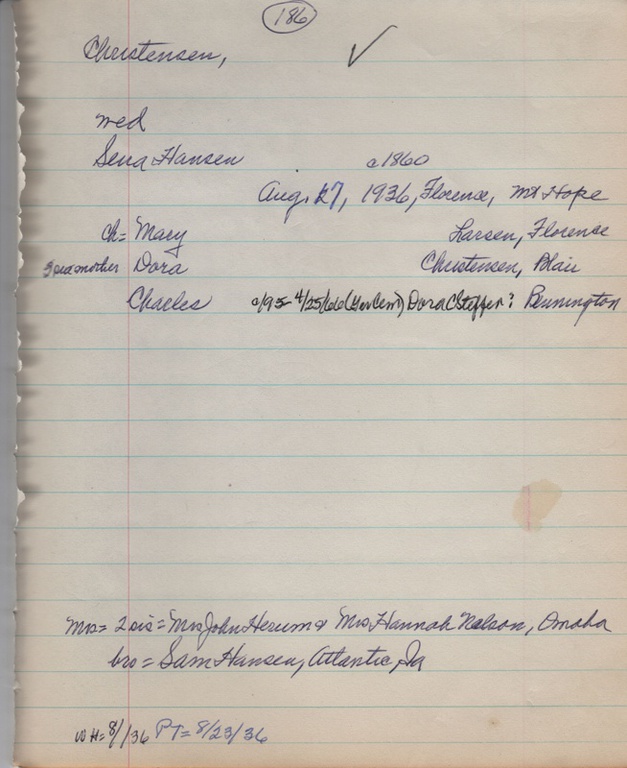 186
Christensen,
med
Sena Hansen c1860
Aug. 27, 1936, Florence, Mt Hope
ch= Mary Larsen, Florence
Dora Christensen, Blair
Charles c/95 4/25/66 Dora C Steffen: Bennington
Mrs= 2 sis= Mrs John Herum & Mrs Hannah Nelson, Omaha
bro= Sam Hansen, Atlantic, Ia
WH= 8/ /36 PT= 8/23/36